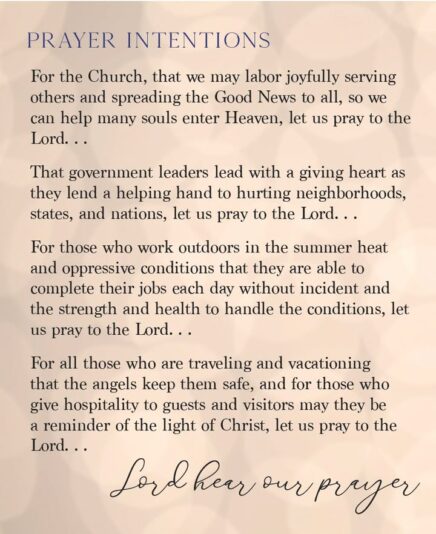 PRAYER INTENTIONS
For the Church, that we may labor joyfully serving
others and spreading the Good News to all, so we
can help many souls enter Heaven, let us pray to the
Lord. . .
That government leaders lead with a giving heart as
they lend a helping hand to hurting neighborhoods,
states, and nations, let us pray to the Lord. . .
For those who work outdoors in the summer heat
and oppressive conditions that they are able to
complete their jobs each day without incident and
the strength and health to handle the conditions, let
us pray to the Lord. . .
For all those who are traveling and vacationing
that the angels keep them safe, and for those who
give hospitality to guests and visitors may they be
a reminder of the light of Christ, let us pray to the
Lord. . .
Lord hear our prayer